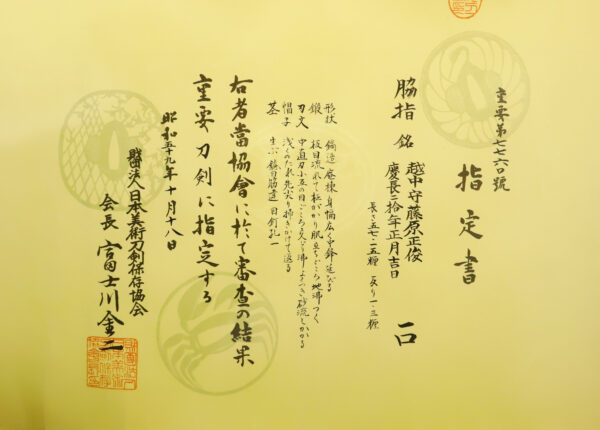 重要第七七六〇號
指定書
脇指 銘 越中守藤原正俊 一口
慶長二拾年正月吉日
長さ五七・一五糎 反り一・三糎
形状 鎬造 庵棟 身幅広く中鋒延びる
鍛 板目流れて柾がかり肌立ちごころ 地沸つく
刃文 中直刃小五の目ごころ交じり沸よくつき砂流しかかる
帽子 浅くのたれ先尖り掃きかけて返る
茎 生ぶ 鑢目筋違 目釘孔一
右者當協會に於て審査の結果
重要刀剣に指定する
昭和五十九年十月十八日
財団法人日本美術刀剣保存協会
会長 富士川金二